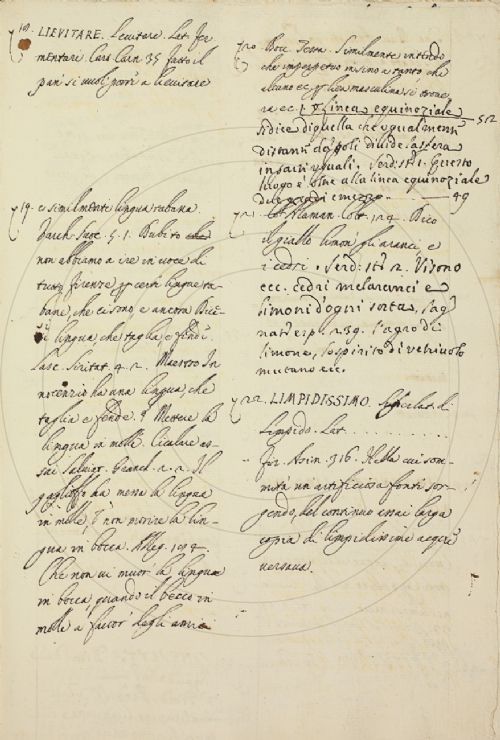 18. LIEVITARE. Levitare. Lat. fer
mentare. Cars. Carn. 35 fatto il
pan si vuol porre a lievitare
19. e similmente lingua tabana
Varch. Suoc. 5. 1. Dubito che
non abbiamo a ire in voce di
tutto firenze per certe lingue ta-
bane, che ci sono, e ancora Dice-
si lingua, che taglia, e fende.
Lasc. Sibill. 4. 2. Maestro In
nocenzio ha una lingua, che
taglia e fende. § Mettere la
lingua in molle. Cicalare as-
sai. Salviat. Granch. 2. 2. Il
gaglioffo ha messa la lingua
in molle, § non morire la lin-
gua in bocca. Alleg. 194.
Che non vi muor la lingua
in bocca quando il becco in
molle a favor degli amici
20. Bocc. Testa. Similmente intendo
che imperpetuo insino a tanto che
alcuno ec. per linea masculina si trove
rà ec. § linea equinoziale
si dice di quella che egualmente
distante da poli divide la sfera
in parti uguali. Serd. st. 1. Questo
luogo è oltre alla linea equinoziale
due gradi e mezzo. 49
512
21. Lor. 124. Dico
il giallo limon gli aranci, e
i cedri. Serd. st. 2. Vi sono
ecc. cedri melaranci e
limoni d'ogni sorta, Sag.
nat. esp. 239. L'agro di
limone, lo spirito di vetriuolo
mutano ec.
22. LIMPIDISSIMO. Superlat. di
Limpido. Lat. . . . . . . . . .
Fir. Asin. 316. Della cui som-
mità un artificiosa fonte sor-
gendo, del continuo assai larga
copia di limpidissime acque
versava.